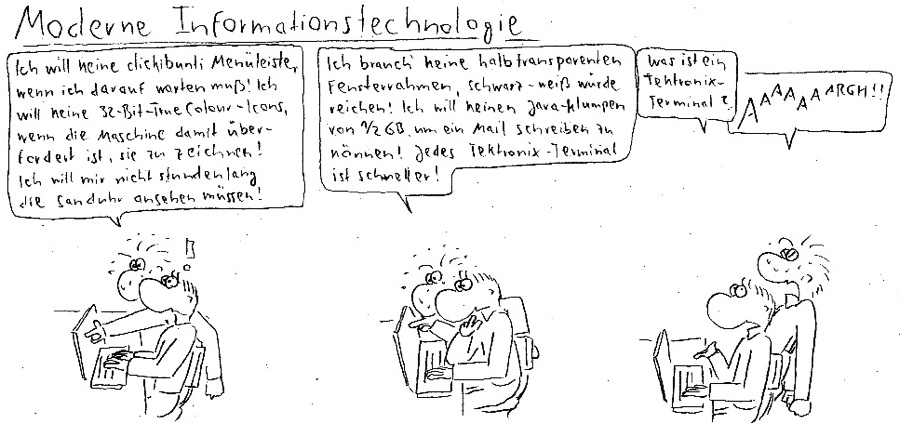 Moderne Informationstechnologie
Ich will keine clickibunti Menüleiste,
wenn ich darauf warten muß! Ich
will keine 32-Bit-True Colour-Icons,
wenn die Maschine damit über-
fordert ist, sie zu zeichnen!
Ich will mir nicht stundenlang
die Sanduhr ansehen müssen!
!
Ich brauch keine halbtransparenten
Fensterrahmen, schwarz-weiß würde
reichen! Ich will keinen Java-Klumpen
von 1/2 GB um ein Mail schreiben zu
können! Jedes Tektronix-Terminal
ist schneller!
Was ist ein
Tektronix-
Terminal?
AAAAAAARGH!!